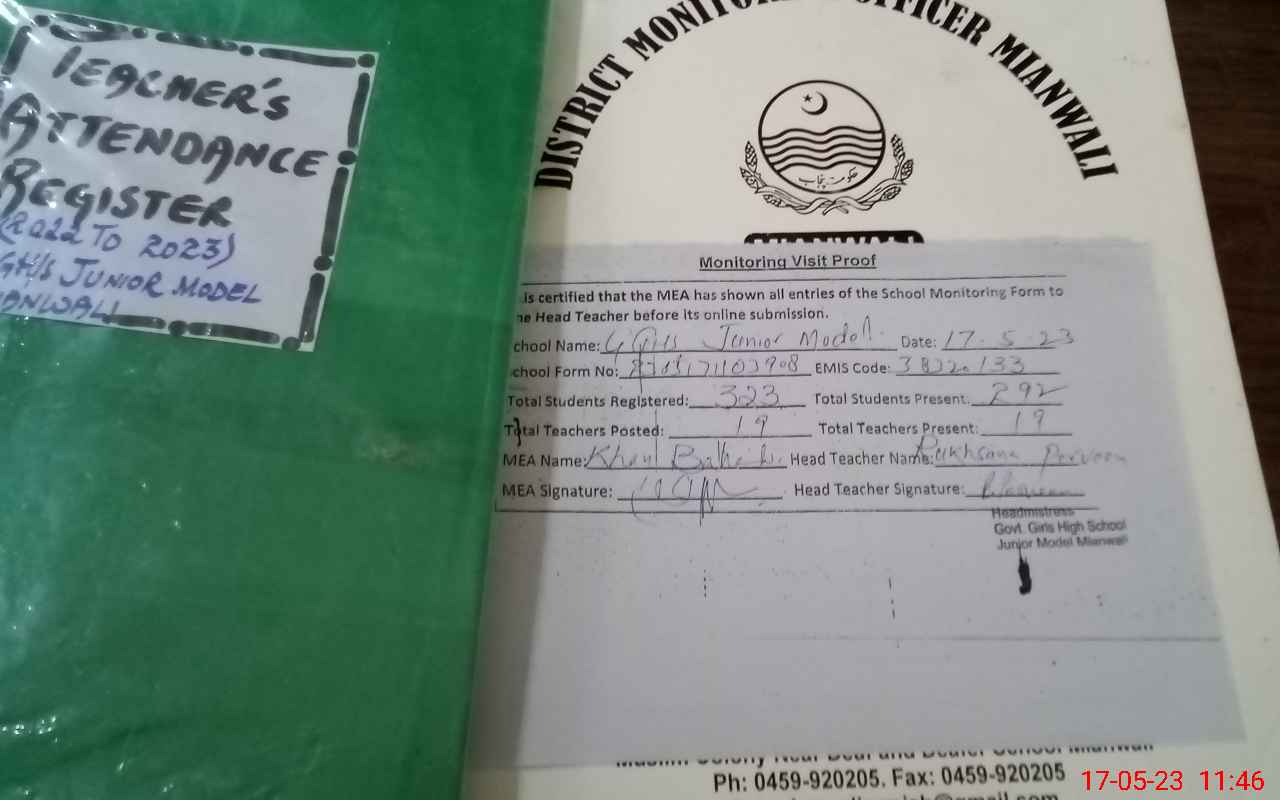 TEACHER'S
ATTENDANCE
REGISTER
(2022 TO 2023)
JUNIOR MODEL
DISTRICT MONITORING OFFICER MIANWALI
حکومت پنجاب
MIANWALI
Monitoring Visit Proof
is certified that the MEA has shown all entries of the School Monitoring Form to
Head Teacher before its online submission.
School Name: GGHS Junior Model Date: 17-5-23
School Form No: EMIS Code:
Total Students Registered: 323 Total Students Present: 292
Total Teachers Posted: 19 Total Teachers Present: 19
MEA Name: Head Teacher Name: Rukhsana Parveen
MEA Signature: Head Teacher Signature:
Headmistress
Govt. Girls High School
Junior Model Mianwali
Muslim Colony Near Deaf and School Mianwali
Ph: 0459-920205. Fax: 0459-920205
17-05-23 11:46